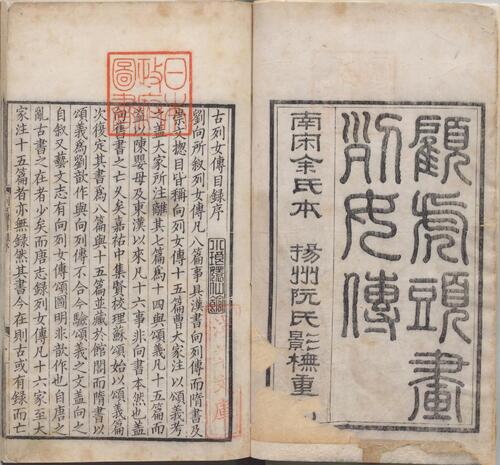 顧虎頭畫
列女傳
南宋余氏本
揚州阮氏影橅重
古列女傳目録序
劉向所敘列女傳凡八篇事具漢書向列傳而隋書及
崇文總目皆稱向列女傳十五篇曹大家注以頌義考
之蓋大家所注離其七篇為十四與頌義凡十五篇而
益以陳嬰母及東漢以來凡十六事非向書本然也蓋
向舊書之亡久矣嘉祐中集賢校理蘇頌始以頌義篇
次復定其書為八篇與十五篇並藏於館閣而隋書以
頌義為劉歆作與向列傳不合今驗頌義之文蓋向之
自敘又藝文志有向列女傳頌圖明非歆作也自唐之
亂古書之在者少矣而唐志録列女傳凡十六家至大
家注十五篇者亦無録然其書今在則古或有録而亡